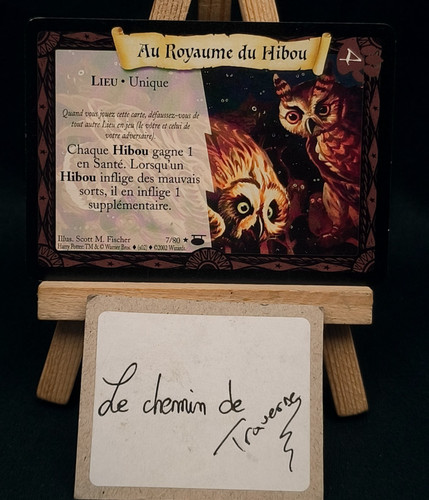 Au Royaume du Hibou
4
LIEU • Unique
Quand vous jouez cette carte, défaussez-vous de
tout autre Lieu en jeu (le vôtre et celui de
votre adversaire).
Chaque Hibou gagne 1
en Santé. Lorsqu'un
Hibou inflige des mauvais
sorts, il en inflige 1
supplémentaire.
Illus. Scott M. Fischer 7/80 ★
Harry Potter, TM & © Warner Bros. ♦ (s02) ♦ ©2002 Wizards.
Le chemin de
Traverse